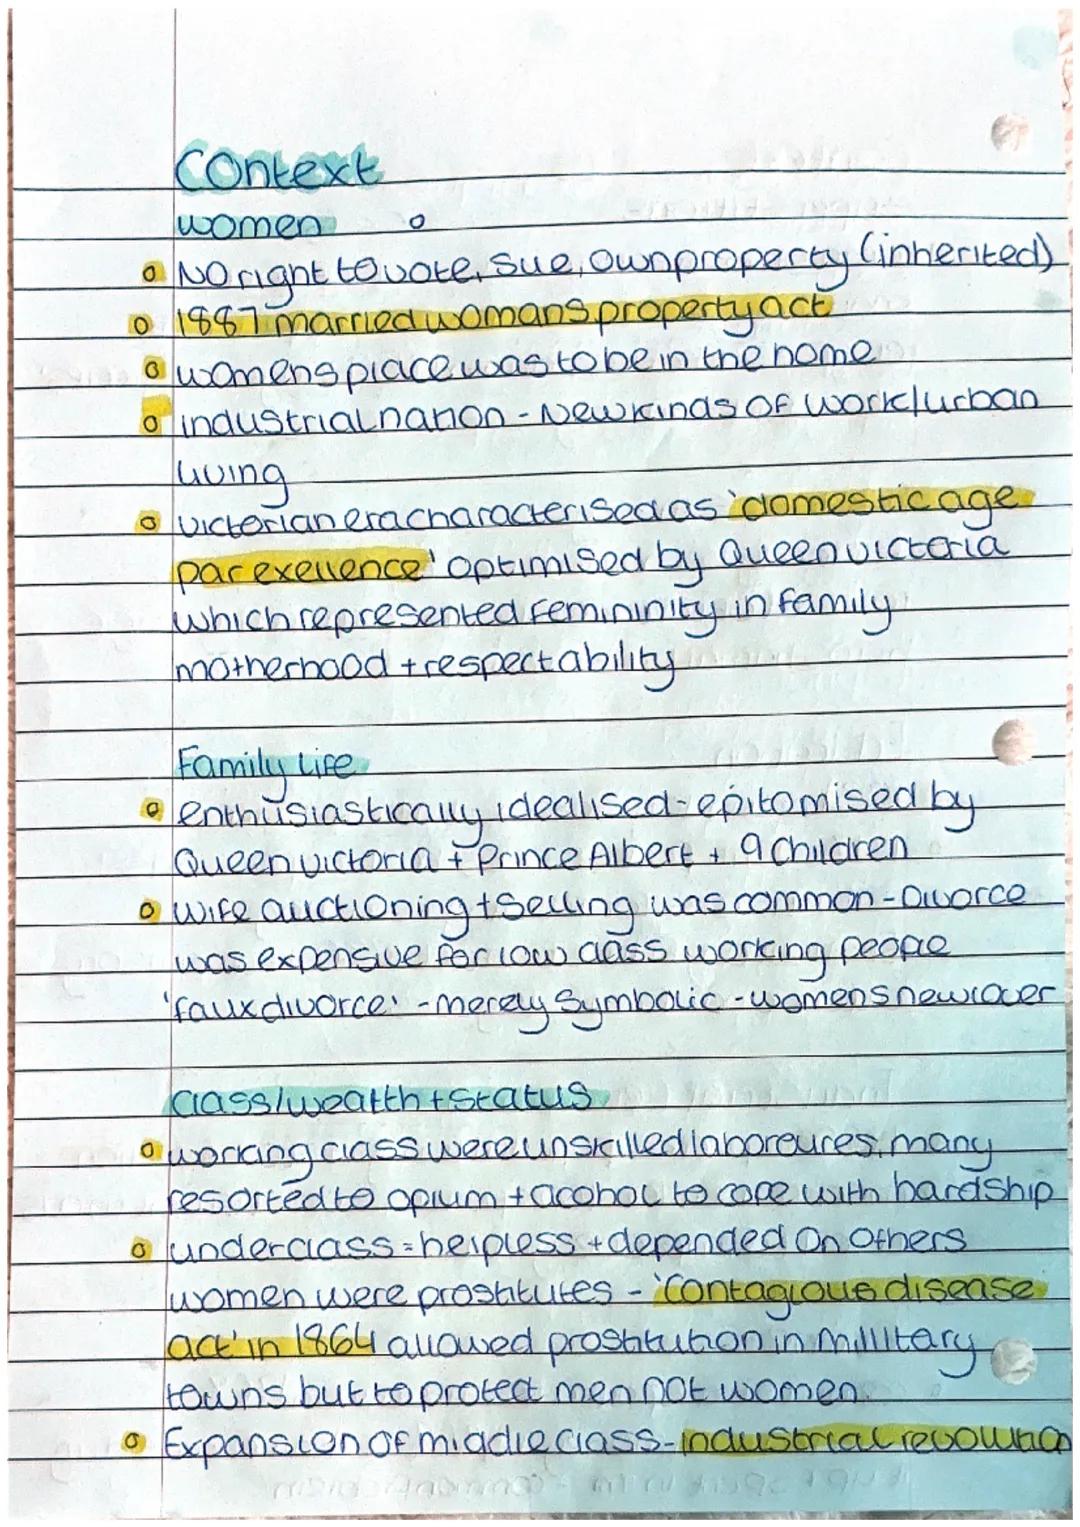 Context
women
No right to vote, sue, own property (inherited)
1887 married womans property act
womens place was to be in the home
industrial nation - New kinds of work/urban
living
victorian era characterised as 'domestic age
par exellence' optimised by Queen victoria
which represented femininity in family
motherhood + respectability
Family Life
enthusiastically idealised - epitomised by
Queen victoria + Prince Albert + 9 children
wife auctioning + selling was common - Divorce
was expensive for low class working people
'faux divorce' - merely symbolic - womens new lover
class/wealth + status
working class were unskilled laboreures, many
resorted to opium + acohol to cope with hardship
underclass = helpless + depended on others
women were prostitutes - 'contagious disease
act' in 1864 allowed prostitution in millitary
towns but to protect men not women
Expansion of middle class - industrial revolution